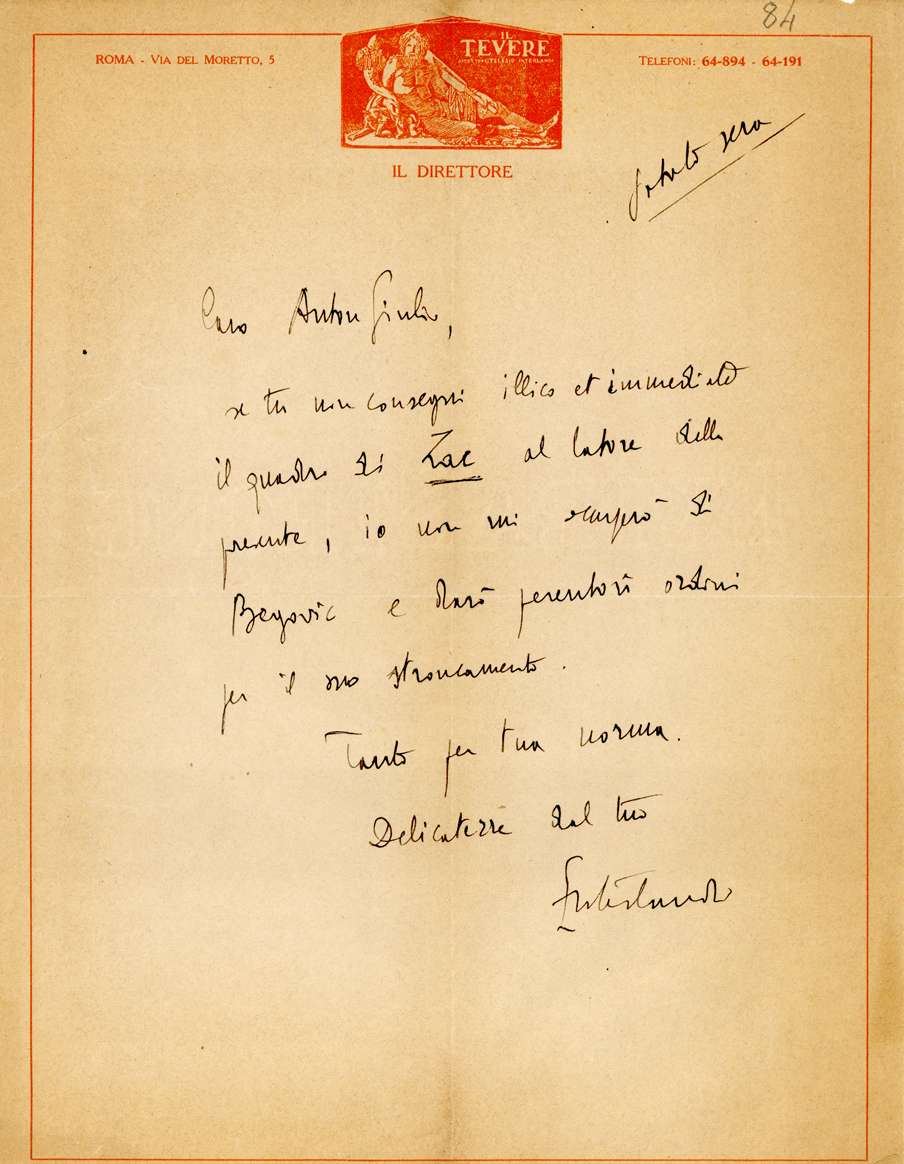 84
ROMA - VIA DEL MORETTO, 5
IL
TEVERE
DIRETTORE: TELESIO INTERLANDI
TELEFONI: 64-894 - 64-191
IL DIRETTORE
sabato sera
Caro Anton Giulio,
se tu non consegni illico et immediate
il quadro di Zac al latore della
presente, io non mi occuperò di
Begovic e darò perentorî ordini
per il suo stroncamento.
Tanto per tua norma.
Delicatezze dal tuo
Interlandi